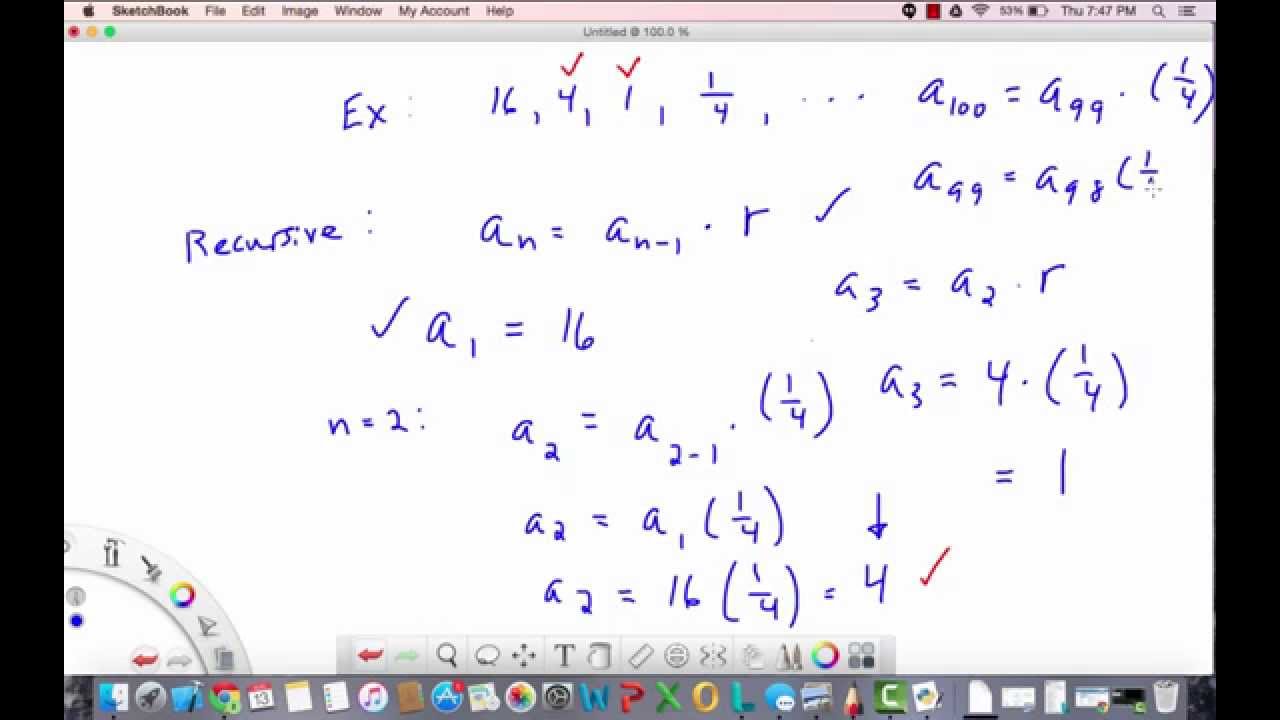 SketchBook File Edit Image Window My Account Help 53% Thu 7:47 PM
Untitled @ 100.0 %
Ex : 16 , 4 , 1 , 1/4 , ... a₁₀₀ = a₉₉ · (1/4)
a₉₉ = a₉₈ (1
Recursive : aₙ = aₙ₋₁ · r ✓
a₃ = a₂ · r
✓ a₁ = 16
a₃ = 4 · (1/4)
n = 2 : a₂ = a₂₋₁ · (1/4)
= 1
a₂ = a₁ (1/4) ↓
a₂ = 16 (1/4) = 4 ✓